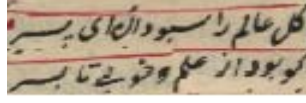 کل عالم را سبو دان ای پسر
کو بود از علم و خوبی تا بسر